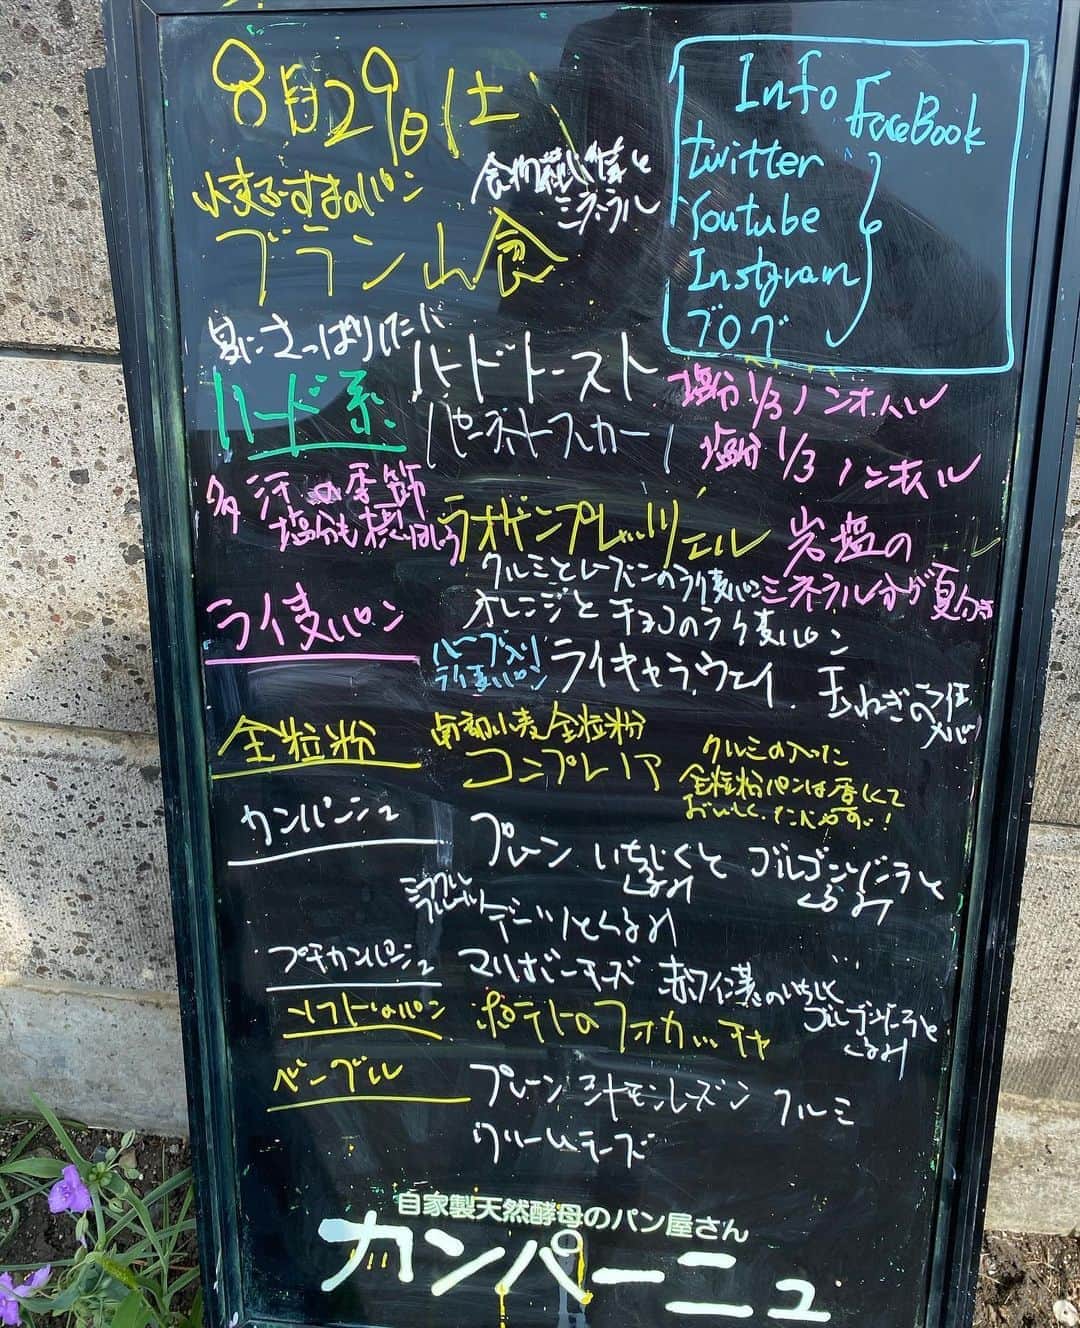 8月29日(土)
Info
FaceBook
twitter
Youtube
Instagram
ブログ
小麦ふすまのパン
食物繊維と
ミネラル
ブラン山食
夏にさっぱりした
ハード系
ハードトースト
塩分1/3ノンオイル
パンデトスカーナ
塩分1/3ノンオイル
多汗の季節
塩分も補給しよう
ラオゲンプレッツェル
岩塩の
ミネラル分が夏向き
クルミとレーズンのライ麦パン
ライ麦パン
オレンジとチョコのライ麦パン
ハーブ入り
ライ麦パン
ライキャラウェイ
玉ねぎのライ麦パン
全粒粉
南部小麦全粒粉
コンプレノア
クルミの入った
全粒粉パンは香しくて
おいしく、たべやすい!
カンパーニュ
プレーン
いちじくと
くるみ
ゴルゴンゾーラと
くるみ
ミラクル
フルーツ
デーツとくるみ
プチカンパーニュ
マルゲリーチーズ
赤ワイン漬のいちじく
ゴルゴンゾーラと
くるみ
ソフトなパン
ポテトのフォカッチャ
ベーグル
プレーン
シナモンレーズン
クルミ
クリームチーズ
自家製天然酵母のパン屋さん
カンパーニュ